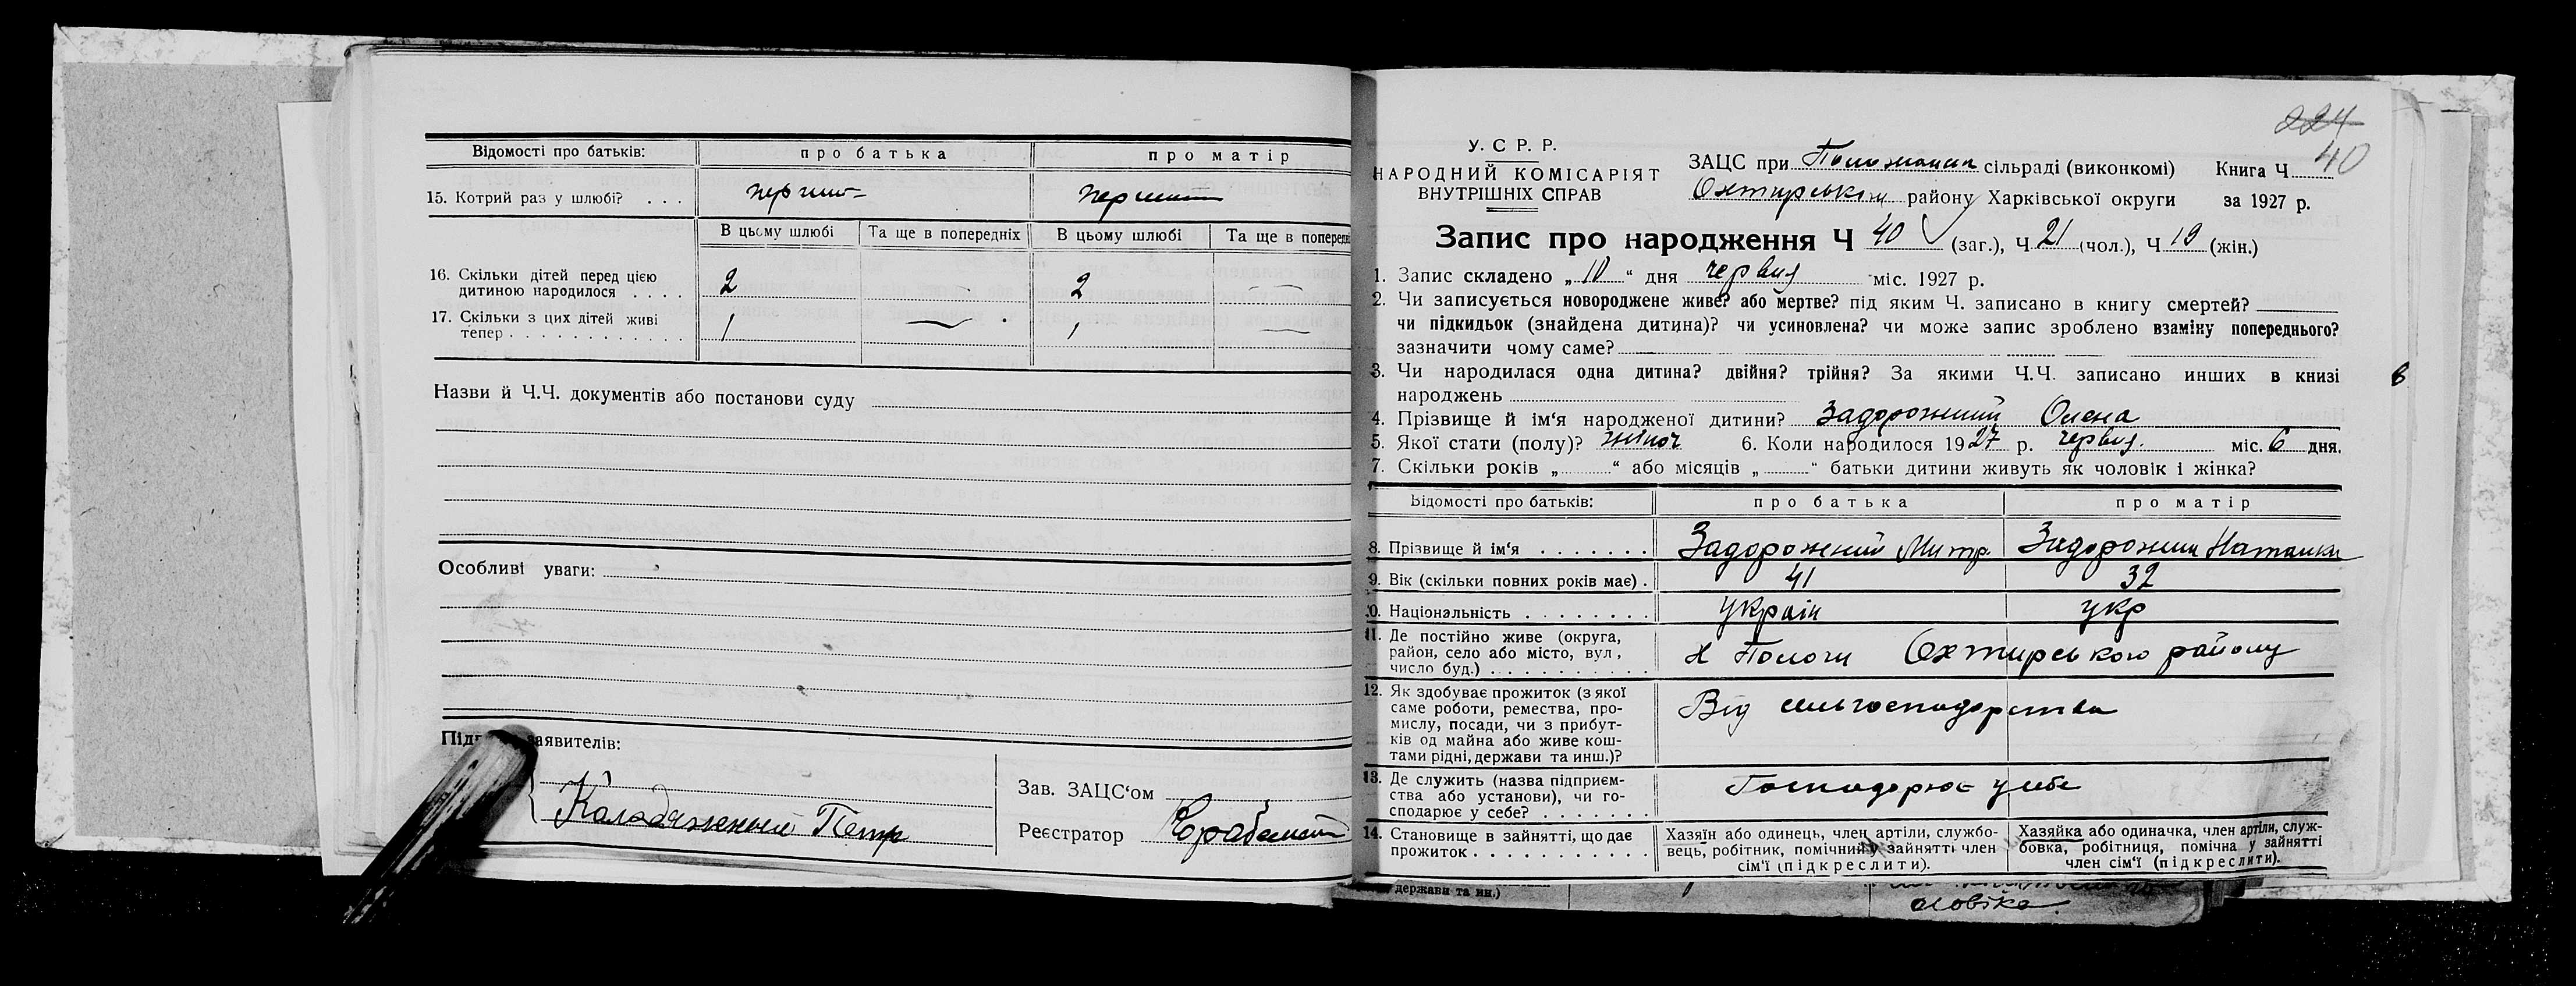 Відомості про батьків: про батька про матір
15. Котрий раз у шлюбі? . . . перший перший
В цьому шлюбі Та ще в попередніх В цьому шлюбі Та ще в попередн
16. Скільки дітей перед цією
дитиною народилося . . . . 2 — 2 —
17. Скільки з цих дітей живі
тепер . . . . . . . . . . . . 1 — 1 —
Назви й Ч.Ч. документів або постанови суду
Особливі уваги:
Підп заявителів:
Коладяжный Петр
Зав. ЗАЦС‘ом
Реєстратор
224
40
У. С. Р. Р.
НАРОДНИЙ КОМІСАРІЯТ
ВНУТРІШНІХ СПРАВ
ЗАЦС при сільраді (виконкомі) Книга Ч.
Охтирськ району Харківської округи за 1927 р.
Запис про народження Ч 40 (заг.), Ч 21 (чол.), Ч 19 (жін.)
1. Запис складено „ 10 “ дня червня міс. 1927 р.
2. Чи записується новороджене живе? або мертве? під яким Ч. записано в книгу смертей?
чи підкидьок (знайдена дитина)? чи усиновлена? чи може запис зроблено взаміну попереднього?
зазначити чому саме?
3. Чи народилася одна дитина? двійня? трійня? За якими Ч.Ч. записано инших в книзі
народжень
4. Прізвище й ім‘я народженої дитини? Задорожний Олена
5. Якої стати (полу)? жіноч 6. Коли народилося 1927 р. червня міс. 6 дня.
7. Скільки років „ “ або місяців „ “ батьки дитини живуть як чоловік і жінка?
Відомості про батьків: про батька про матір
8. Прізвище й ім‘я . . . . . . . Задорожний Митр. Задорожна Наталка
9. Вік (скільки повних років має) . 41 32
0. Національність . . . . . . . . україн укр
11. Де постійно живе (округа,
район, село або місто, вул,
число буд.) . . . . . . . . . . х Пологи Охтирського району
12. Як здобуває прожиток (з якої
саме роботи, ремества, про-
мислу, посади, чи з прибут-
ків од майна або живе кош-
тами рідні, держави та инш.)? Від сільгосподарства
13. Де служить (назва підприєм-
ства або установи), чи го-
сподарює у себе? . . . . . . . Господарює у себе
14. Становище в зайнятті, що дає
прожиток . . . . . . . . . . .
Хазяїн або одинець, член артіли, службо-
вець, робітник, помічний у зайнятті член
сім‘ї (підкреслити).
Хазяйка або одиначка, член артіли, служ-
бовка, робітниця, помічна у зайнятті
член сім‘ї (підкреслити).
держави та ин.)
оловіка